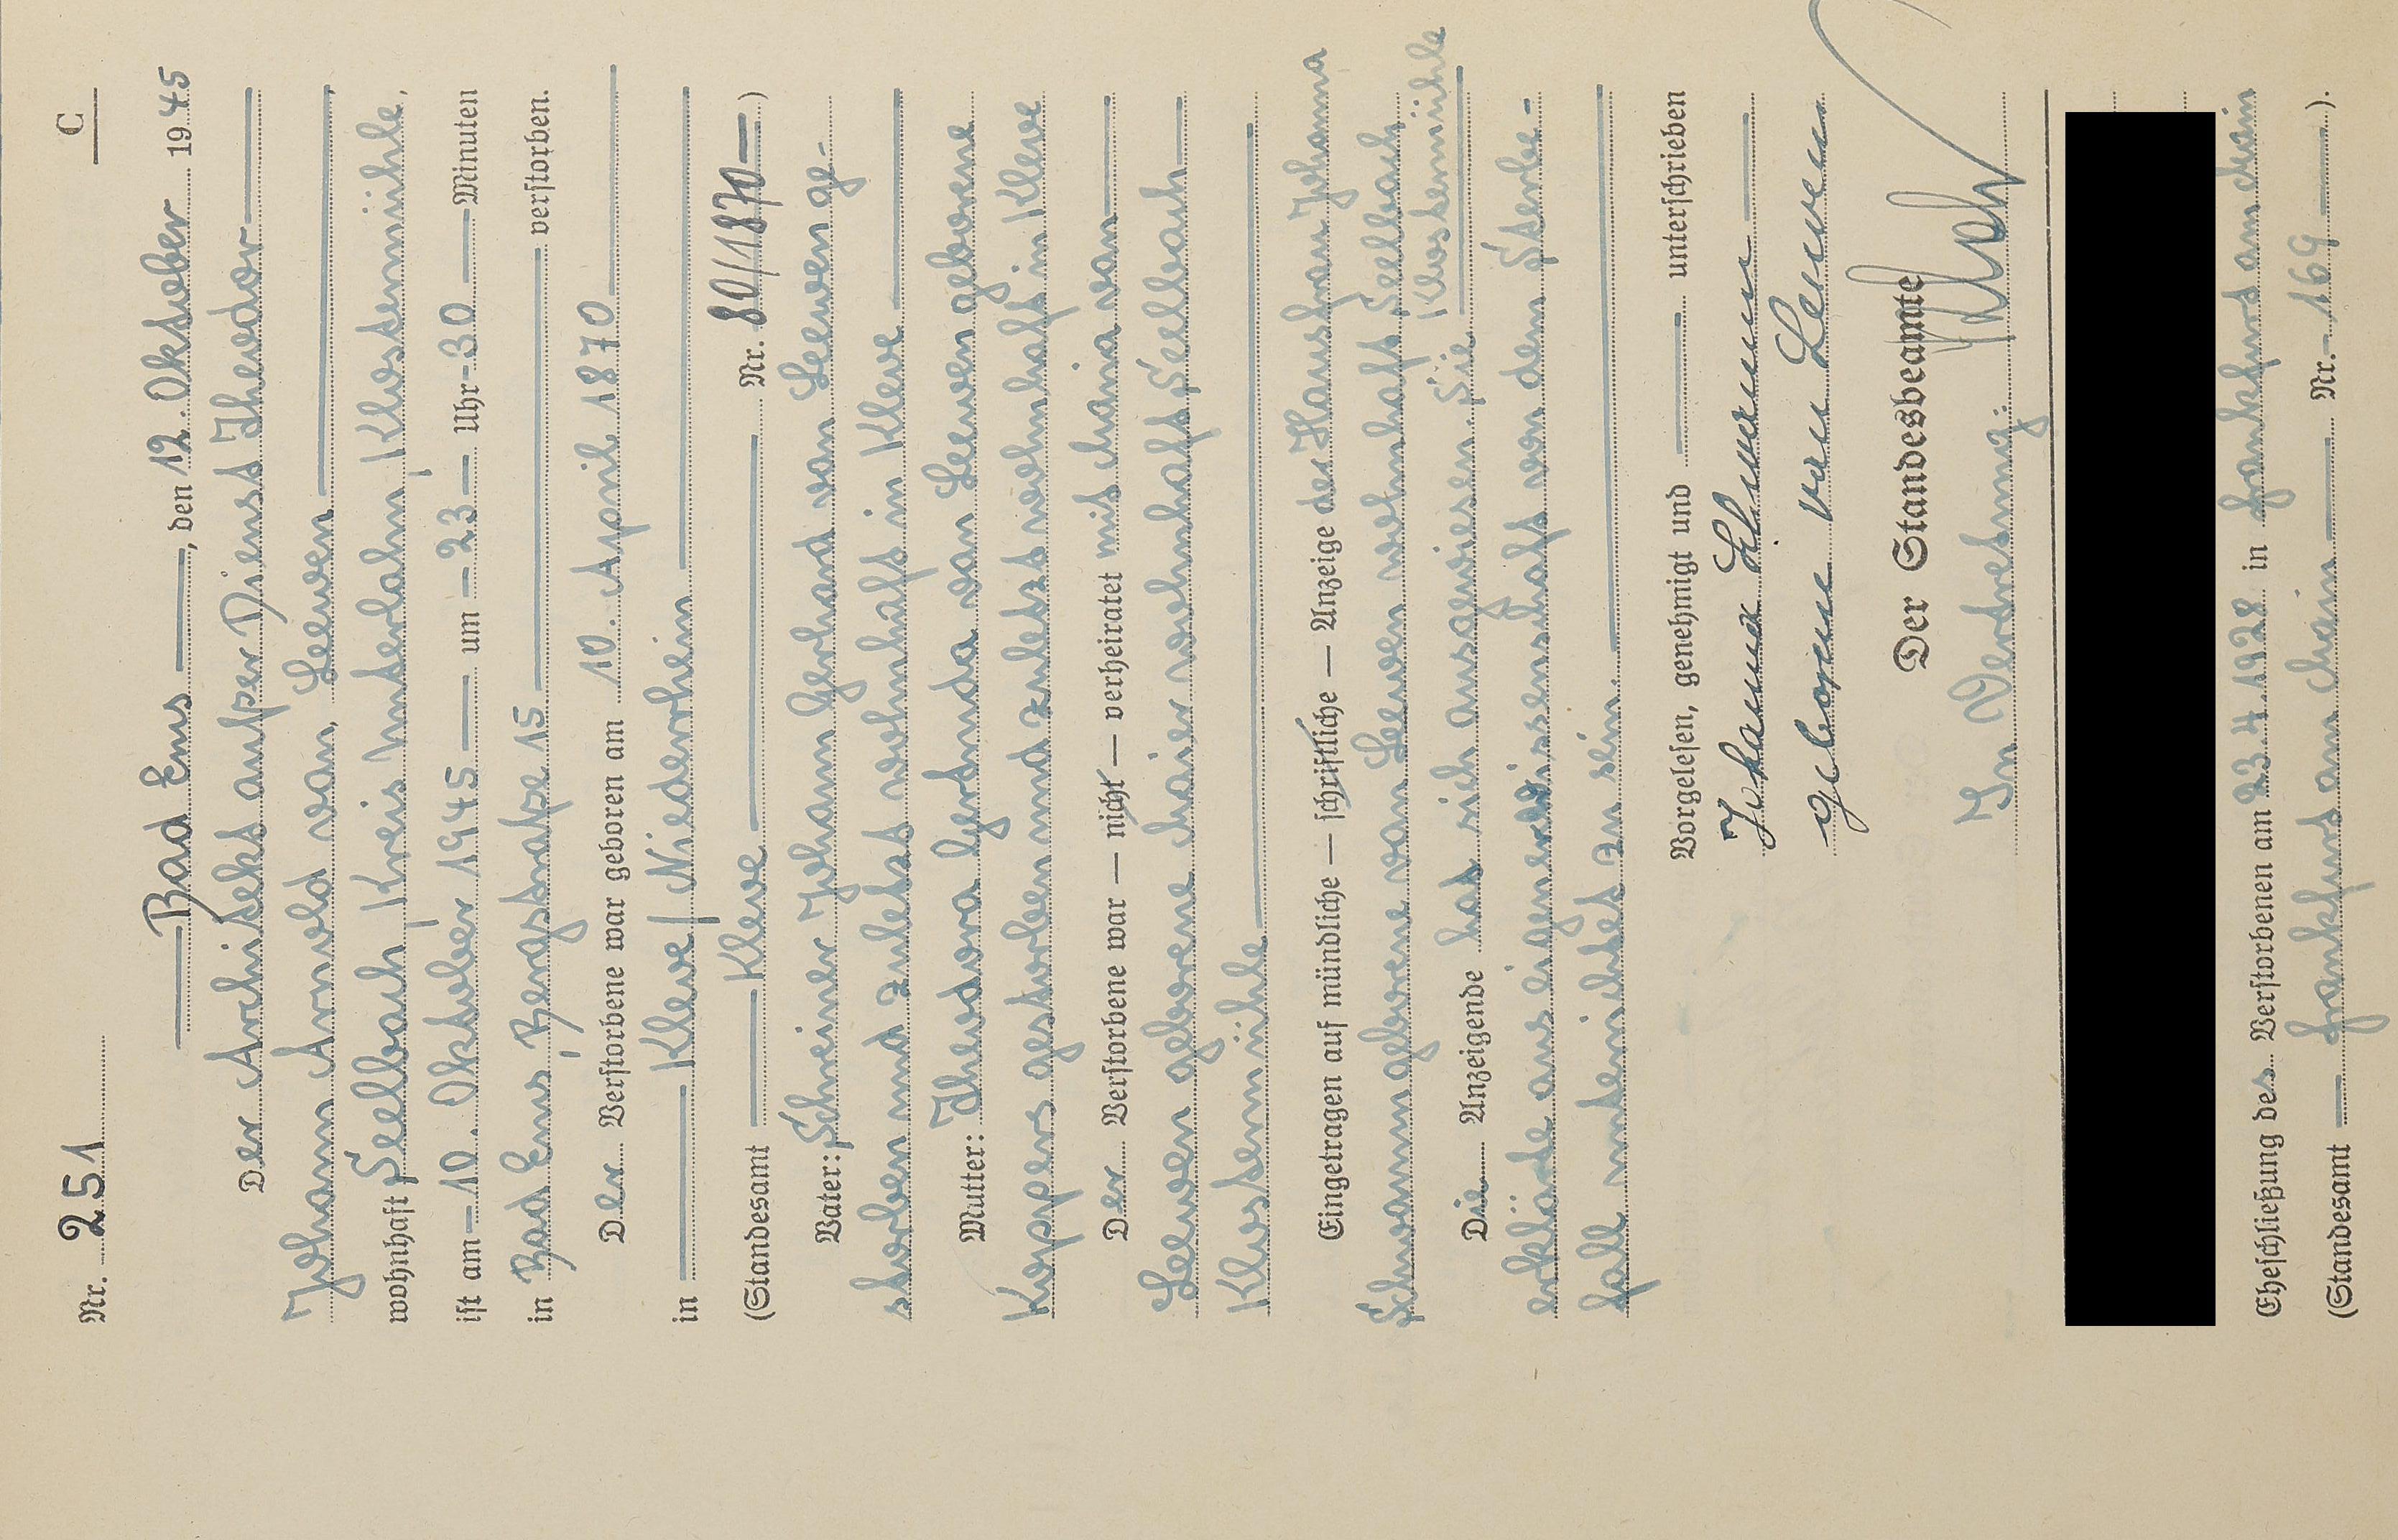 Nr. 251 C
Bad Ems, den 12. Oktober 1945
Der Architekt außer Dienst Theodor
Johann Arnold van Leewen
wohnhaft Seelbach Kreis Unterlahn, Klostermühle,
ist am 10. Oktober 1945 um 23 Uhr 30 Minuten
in Bad Ems, Bergstraße 15 verstorben.
Der Verstorbene war geboren am 10. April 1870
in Kleve/Niederrhein
(Standesamt Kleve Nr. 80/1870)
Vater: Schreiner Johann Gerhard van Leewen ge-
storben und zuletzt wohnhaft in Kleve
Mutter: Theodora Gertruda van Leewen geborene
Koppers gestorben und zuletzt wohnhaft in Kleve
Der Verstorbene war — nicht — verheiratet mit Maria van
Leewen geborene Maier wohnhaft Seelbach
Klostermühle
Eingetragen auf mündliche — schriftliche — Anzeige der Hausfrau Johanna
Schwann geborene van Leewen wohnhaft Seelbach,
Klostermühle
Die Anzeigende hat sich ausgewiesen. Sie
erklärte aus eigener Wissenschaft von dem Sterbe-
fall unterrichtet zu sein.
Vorgelesen, genehmigt und unterschrieben
Johanna Schwann
geborene van Leewen
Der Standesbeamte
In Vertretung:
Eheschließung des Verstorbenen am 23.4.1928 in Frankfurt am Main
(Standesamt Frankfurt am Main Nr. 169).